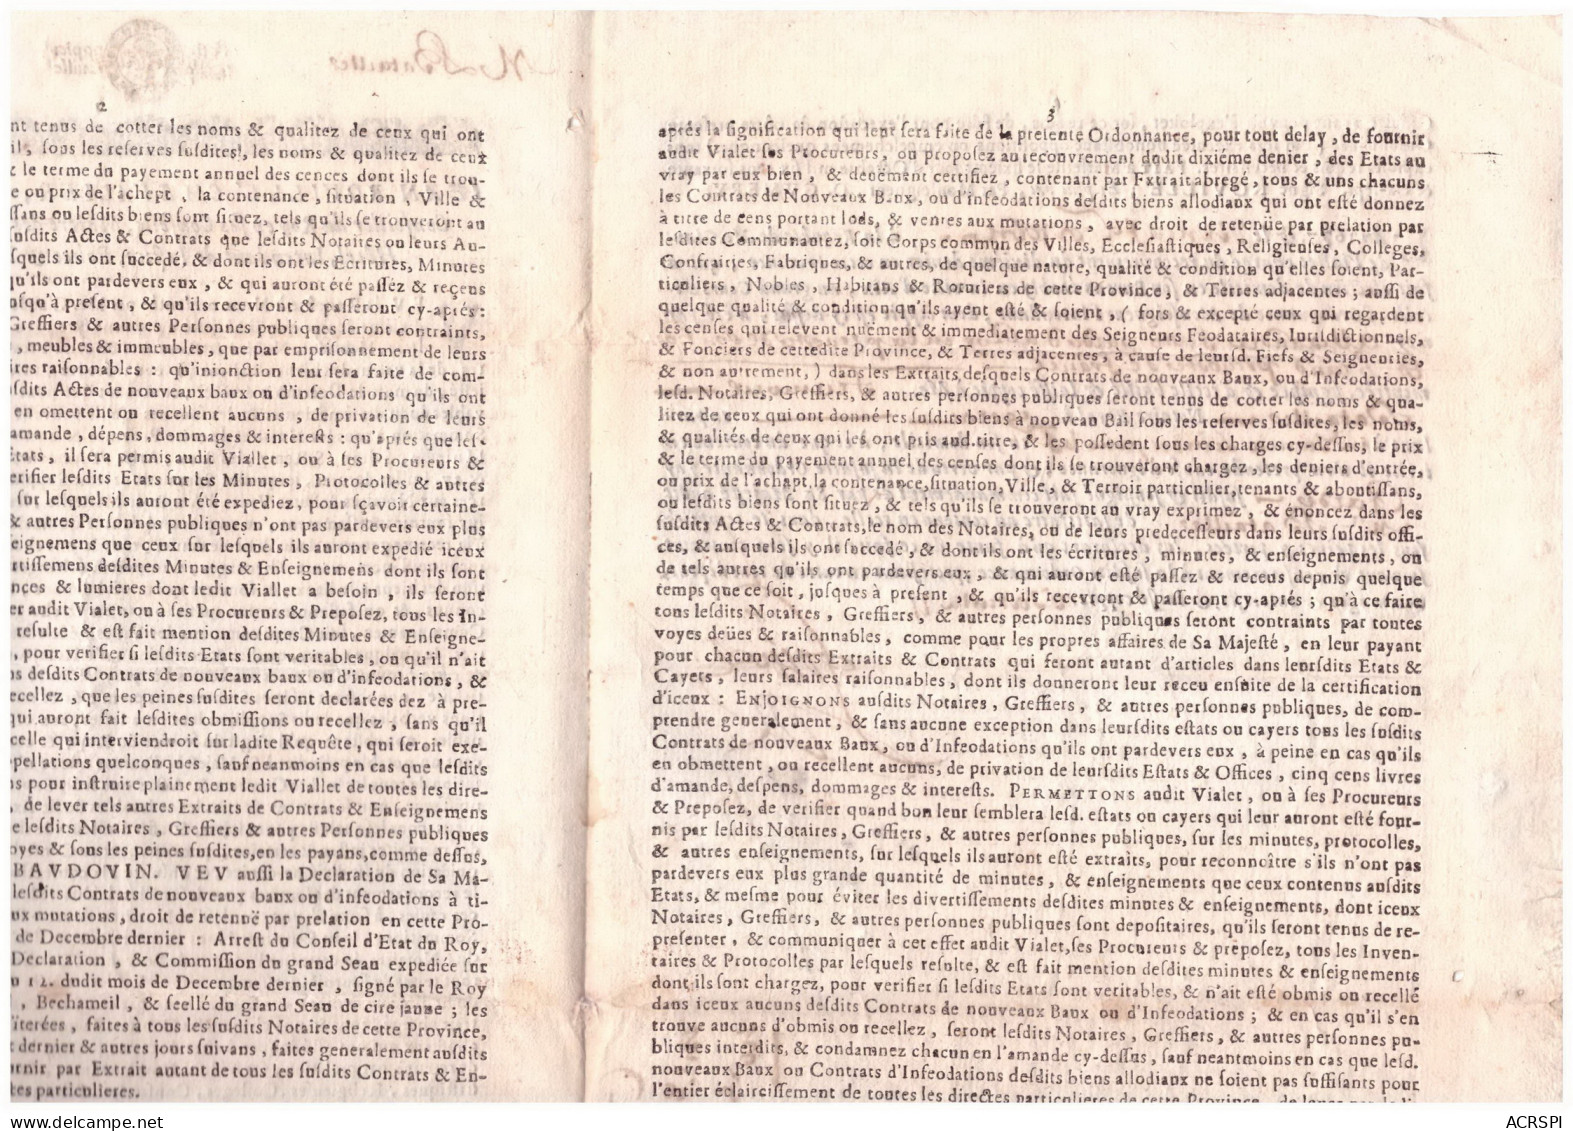 2
nt tenus de cotter les noms & qualitez de ceux qui ont
il, sous les reserves susdites, les noms & qualitez de ceux
& le terme du payement annuel des cences dont ils se trou-
e ou prix de l'achept, la contenance, situation, Ville &
ssans ou lesdits biens sont situez, tels qu'ils se trouveront au
susdits Actes & Contrats que lesdits Notaires ou leurs Au-
squels ils ont succedé, & dont ils ont les Ecritures, Minutes
qu'ils ont pardevers eux, & qui auront été passéz & reçens
usqu'à present, & qu'ils recevront & passeront cy-aprés:
Greffiers & autres Personnes publiques seront contraints,
, meubles & immeubles, que par emprisonnement de leurs
ires raisonnables : qu'injonction leur sera faite de com-
sdits Actes de nouveaux baux ou d'infeodations qu'ils ont
en omettent ou recellent aucuns, de privation de leurs
amande, dépens, dommages & interests : qu'aprés que les-
Etats, il sera permis audit Viallet, ou à ses Procureurs &
erifier lesdits Etats sur les Minutes, Protocolles & autres
sur lesquels ils auront été expediez, pour sçavoir certaine-
& autres Personnes publiques n'ont pas pardevers eux plus
eignemens que ceux sur lesquels ils auront expedié iceux
rtissemens desdites Minutes & Enseignemens dont ils sont
nces & lumieres dont ledit Viallet a besoin, ils seront
er audit Vialet, ou à ses Procureurs & Preposez, tous les In-
resulte & est fait mention desdites Minutes & Enseigne-
, pour verifier si lesdits Etats sont veritables, ou qu'il n'ait
ns desdits Contrats de nouveaux baux ou d'infeodations, &
ecellez, que les peines susdites seront declarées dez à pre-
qui auront fait lesdites obmissions ou recellez, sans qu'il
celle qui interviendroit sur ladite Requête, qui seroit exe-
pellations quelconques, sauf neanmoins en cas que lesdits
ns pour instruire plainement ledit Viallet de toutes les dire-
, de lever tels autres Extraits de Contrats & Enseignemens
e lesdits Notaires, Greffiers & autres Personnes publiques
oyes & sous les peines susdites, en les payans, comme dessus,
BAVDOVIN. VEV aussi la Declaration de Sa Ma-
lesdits Contrats de nouveaux baux ou d'infeodations à ti-
ux mutations, droit de retenuë par prelation en cette Pro-
de Decembre dernier : Arrest du Conseil d'Etat du Roy,
Declaration, & Commission du grand Seau expediée sur
u 12. dudit mois de Decembre dernier, signé par le Roy
, Bechameil, & seellé du grand Seau de cire jaune ; les
iterées, faites à tous les susdits Notaires de cette Province,
dernier & autres jours suivans, faites generalement ausdits
urnir par Extrait autant de tous les susdits Contrats & En-
tes particulieres.
3
aprés la signification qui leur sera faite de la presente Ordonnance, pour tout delay, de fournir
audit Vialet ses Procureurs, ou proposez au recouvrement dudit dixiéme denier, des Etats au
vray par eux bien, & deuëment certifiez, contenant par Extrait abregé, tous & uns chacuns
les Contrats de Nouveaux Baux, ou d'infeodations desdits biens allodiaux qui ont esté donnez
à titre de cens portant lods, & ventes aux mutations, avec droit de retenüe par prelation par
lesdites Communautez, soit Corps commun des Villes, Ecclesiastiques, Religieuses, Colleges,
Confrairies, Fabriques, & autres, de quelque nature, qualité & condition qu'elles soient, Par-
ticuliers, Nobles, Habitans & Roturiers de cette Province, & Terres adjacentes ; aussi de
quelque qualité & condition qu'ils ayent esté & soient, ( fors & excepté ceux qui regardent
les censes qui relevent nuëment & immediatement des Seigneurs Feodataires, Iurisdictionnels,
& Fonciers de cettedite Province, & Terres adjacentes, à cause de leursd. Fiefs & Seigneuries,
& non autrement, ) dans les Extraits desquels Contrats de nouveaux Baux, ou d'Infeodations,
lesd. Notaires, Greffiers, & autres personnes publiques seront tenus de cotter les noms & qua-
litez de ceux qui ont donné les susdits biens à nouveau Bail sous les reserves susdites, les noms,
& qualités de ceux qui les ont pris aud. titre, & les possedent sous les charges cy-dessus, le prix
& le terme du payement annuel des censes dont ils se trouveront chargez, les deniers d'entrée,
ou prix de l'achapt, la contenance, situation, Ville, & Terroir particulier, tenants & aboutissans,
ou lesdits biens sont situez, & tels qu'ils se trouveront au vray exprimez, & énoncez dans les
susdits Actes & Contrats, le nom des Notaires, ou de leurs predecesseurs dans leurs susdits offi-
ces, & ausquels ils ont succedé, & dont ils ont les écritures, minutes, & enseignements, ou
de tels autres qu'ils ont pardevers eux, & qui auront esté passez & receus depuis quelque
temps que ce soit, jusques à present, & qu'ils recevront & passeront cy-aprés ; qu'à ce faire
tous lesdits Notaires, Greffiers, & autres personnes publiques seront contraints par toutes
voyes deües & raisonnables, comme pour les propres affaires de Sa Majesté, en leur payant
pour chacun desdits Extraits & Contrats qui feront autant d'articles dans leursdits Etats &
Cayers, leurs salaires raisonnables, dont ils donneront leur receu ensuite de la certification
d'iceux : ENJOIGNONS ausdits Notaires, Greffiers, & autres personnes publiques, de com-
prendre generalement, & sans aucune exception dans leursdits estats ou cayers tous les susdits
Contrats de nouveaux Baux, ou d'Infeodations qu'ils ont pardevers eux, à peine en cas qu'ils
en obmettent, ou recellent aucuns, de privation de leursdits Estats & Offices, cinq cens livres
d'amande, despens, dommages & interests. PERMETTONS audit Vialet, ou à ses Procureurs
& Preposez, de verifier quand bon leur semblera lesd. estats ou cayers qui leur auront esté four-
nis par lesdits Notaires, Greffiers, & autres personnes publiques, sur les minutes, protocolles,
& autres enseignements, sur lesquels ils auront esté extraits, pour reconnoître s'ils n'ont pas
pardevers eux plus grande quantité de minutes, & enseignements que ceux contenus ausdits
Etats, & mesme pour éviter les divertissements desdites minutes & enseignements, dont iceux
Notaires, Greffiers, & autres personnes publiques sont depositaires, qu'ils seront tenus de re-
presenter, & communiquer à cet effet audit Vialet, ses Procureurs & preposez, tous les Inven-
taires & Protocolles par lesquels resulte, & est fait mention desdites minutes & enseignements
dont ils sont chargez, pour verifier si lesdits Etats sont veritables, & n'ait esté obmis ou recellé
dans iceux aucuns desdits Contrats de nouveaux Baux ou d'Infeodations ; & en cas qu'il s'en
trouve aucuns d'obmis ou recellez, seront lesdits Notaires, Greffiers, & autres personnes pu-
bliques interdits, & condamnez chacun en l'amande cy-dessus, sauf neantmoins en cas que lesd.
nouveaux Baux ou Contrats d'Infeodations desdits biens allodiaux ne soient pas suffisants pour
l'entier éclaircissement de toutes les directes particulieres de cette Province
ACRSPI